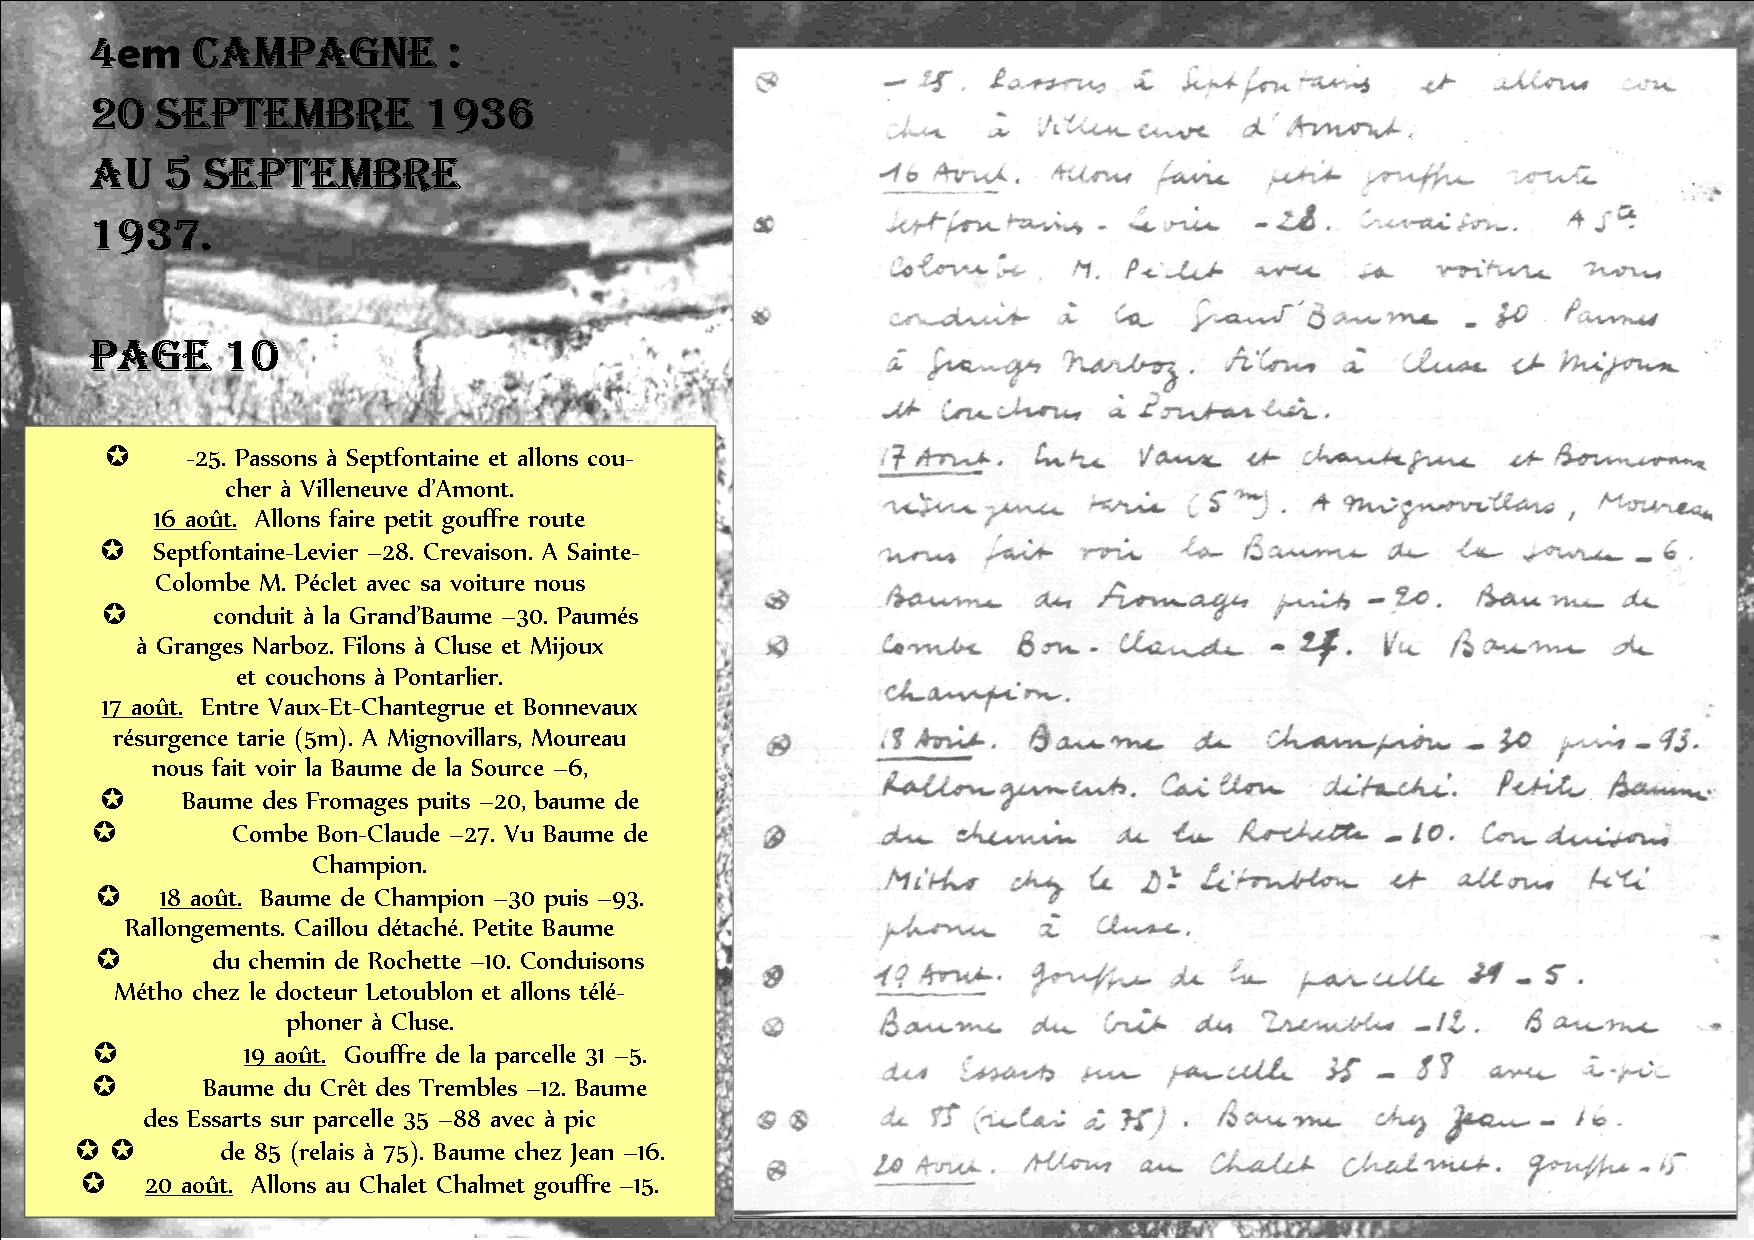 4em CAMPAGNE :
20 SEPTEMBRE 1936
AU 5 SEPTEMBRE
1937.
PAGE 10
✪ -25. Passons à Septfontaine et allons cou-
cher à Villeneuve d'Amont.
16 août. Allons faire petit gouffre route
✪ Septfontaine-Levier –28. Crevaison. A Sainte-
Colombe M. Péclet avec sa voiture nous
✪ conduit à la Grand'Baume –30. Paumés
à Granges Narboz. Filons à Cluse et Mijoux
et couchons à Pontarlier.
17 août. Entre Vaux-Et-Chantegrue et Bonnevaux
résurgence tarie (5m). A Mignovillars, Moureau
nous fait voir la Baume de la Source –6,
✪ Baume des Fromages puits –20, baume de
✪ Combe Bon-Claude –27. Vu Baume de
Champion.
✪ 18 août. Baume de Champion –30 puis –93.
Rallongements. Caillou détaché. Petite Baume
✪ du chemin de Rochette –10. Conduisons
Métho chez le docteur Letoublon et allons télé-
phoner à Cluse.
✪ 19 août. Gouffre de la parcelle 31 –5.
✪ Baume du Crêt des Trembles –12. Baume
des Essarts sur parcelle 35 –88 avec à pic
✪ ✪ de 85 (relais à 75). Baume chez Jean –16.
✪ 20 août. Allons au Chalet Chalmet gouffre –15.
– 25. Passons à Septfontaines et allons cou
cher à Villeneuve d'Amont.
16 Aout. Allons faire petit gouffre route
Septfontaines - Levier - 28. Crevaison. A Ste
Colombe. M. Péclet avec sa voiture nous
conduit à la Grand'Baume - 30 Paumés
à Granges Narboz. Filons à Cluse et Mijoux
et couchons à Pontarlier.
17 Aout. Entre Vaux et chantegrue et Bonnevaux
résurgence tarie (5m). A Mignovillars, Moureau
nous fait voir la Baume de la source - 6.
Baume des Fromages puits - 20. Baume de
Combe Bon-Claude - 27. Vu Baume de
champion.
18 Août. Baume de Champion - 30 puis - 93.
Rallongements. Caillou détaché. Petite Baume
du chemin de la Rochette - 10. Conduisons
Métho chez le Dr Letoublon et allons télé
phoner à Cluse.
19 Aout. Gouffre de la parcelle 31 - 5.
Baume du Crêt des Trembles - 12. Baume
des Essarts sur parcelle 35 - 88 avec à-pic
de 85 (relai à 75). Baume chez Jean - 16.
20 Aout. Allons au Chalet Chalmet. gouffre - 15